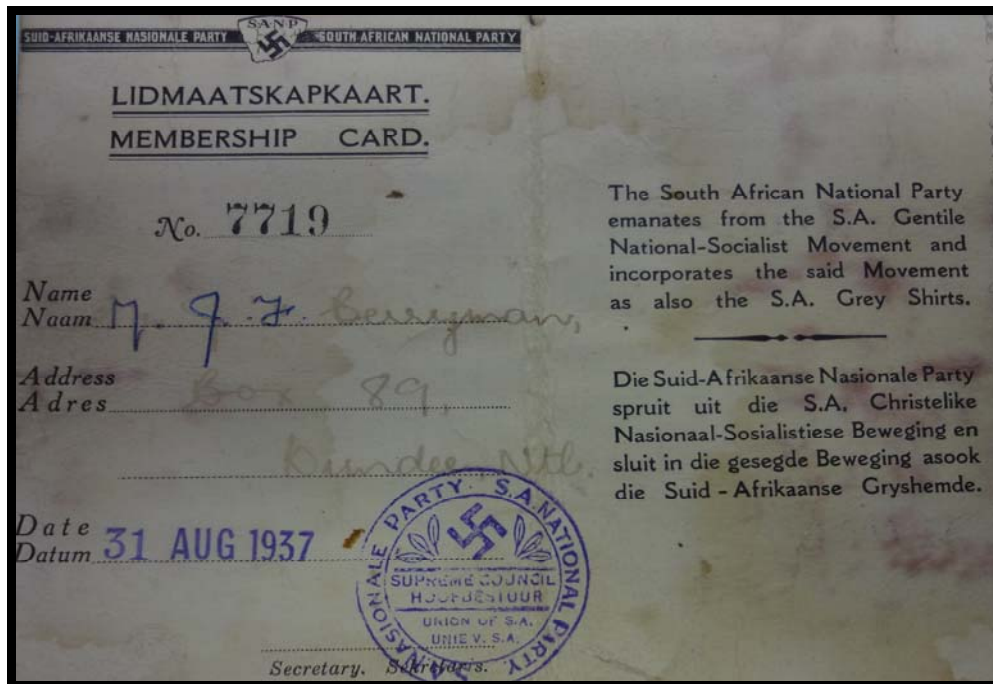 SANP
SUID-AFRIKAANSE NASIONALE PARTY SOUTH AFRICAN NATIONAL PARTY
LIDMAATSKAPKAART.
MEMBERSHIP CARD.
No. 7719
Name
Naam J. F. Berryman,
Address
Adres Box 89,
Dundee, Ntl.
Date
Datum 31 AUG 1937
S.A. NASIONALE PARTY. S.A. NATIONAL PARTY.
SUPREME COUNCIL
HOOFBESTUUR
UNION OF S.A.
UNIE V. S.A.
Secretary. Sekretaris.
The South African National Party
emanates from the S.A. Gentile
National-Socialist Movement and
incorporates the said Movement
as also the S.A. Grey Shirts.
Die Suid-Afrikaanse Nasionale Party
spruit uit die S.A. Christelike
Nasionaal-Sosialistiese Beweging en
sluit in die gesegde Beweging asook
die Suid-Afrikaanse Gryshemde.